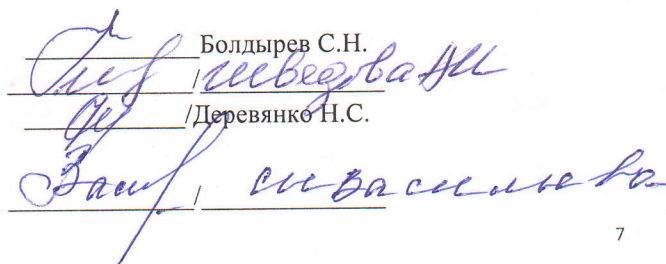 Болдырев С.Н.
/ Шведова АН
/Деревянко Н.С.
/ СН Васильева
7